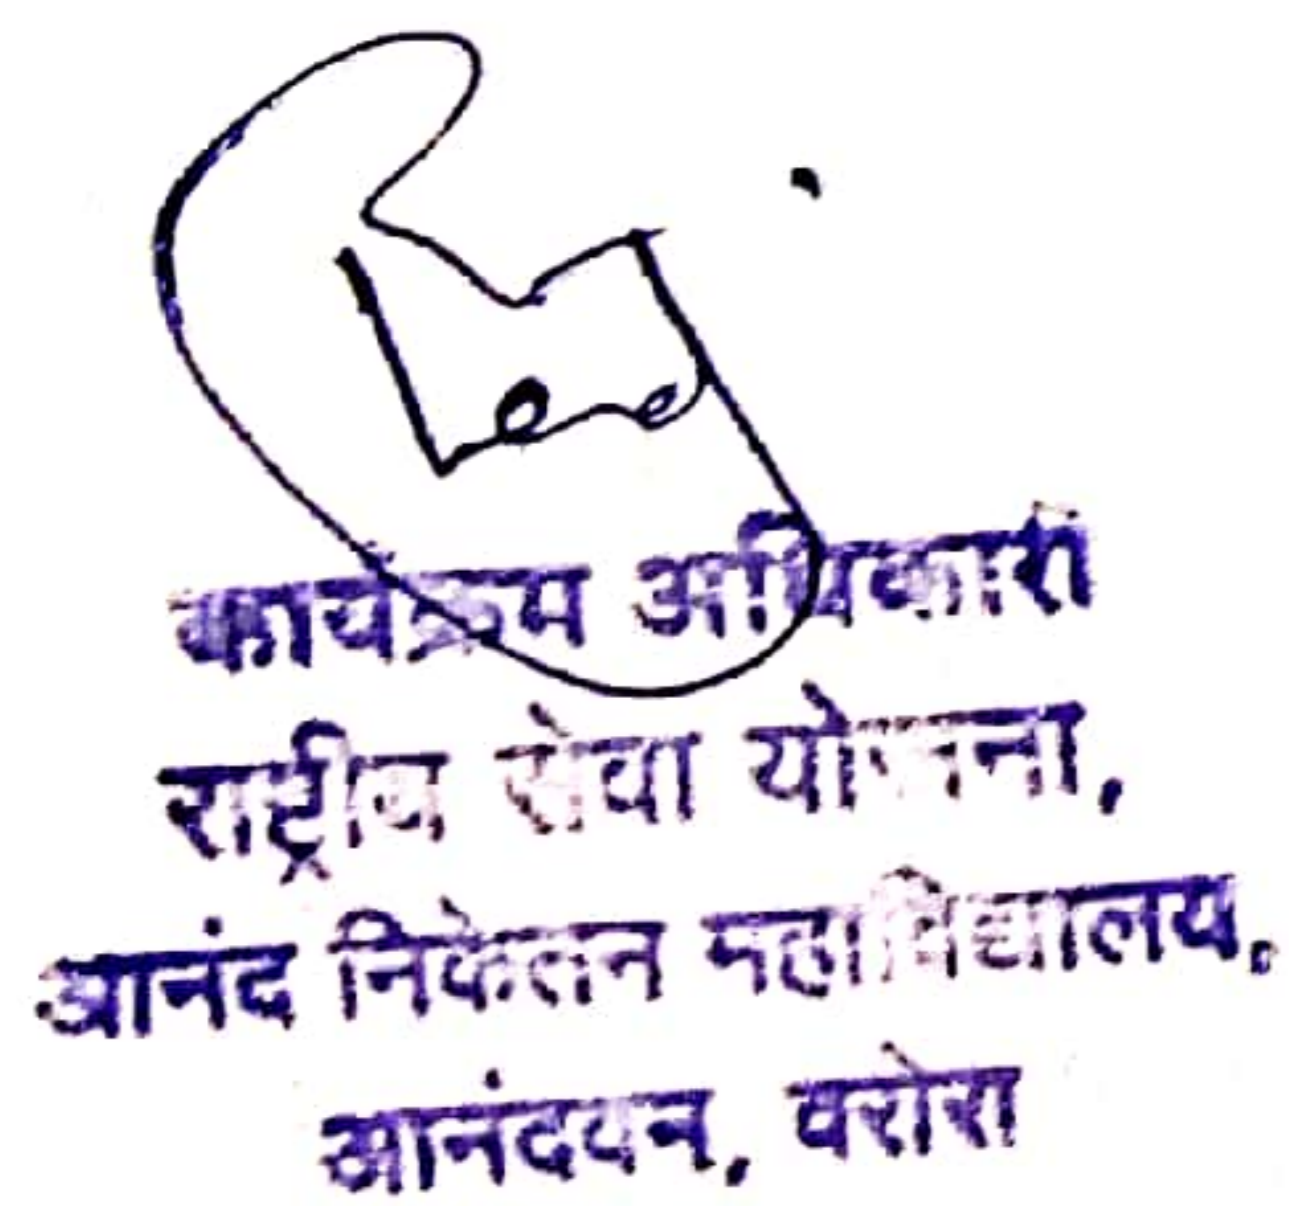 कार्यक्रम अधिकारी
राष्ट्रीय सेवा योजना,
आनंद निकेतन महाविद्यालय,
आनंदवन, वरोरा